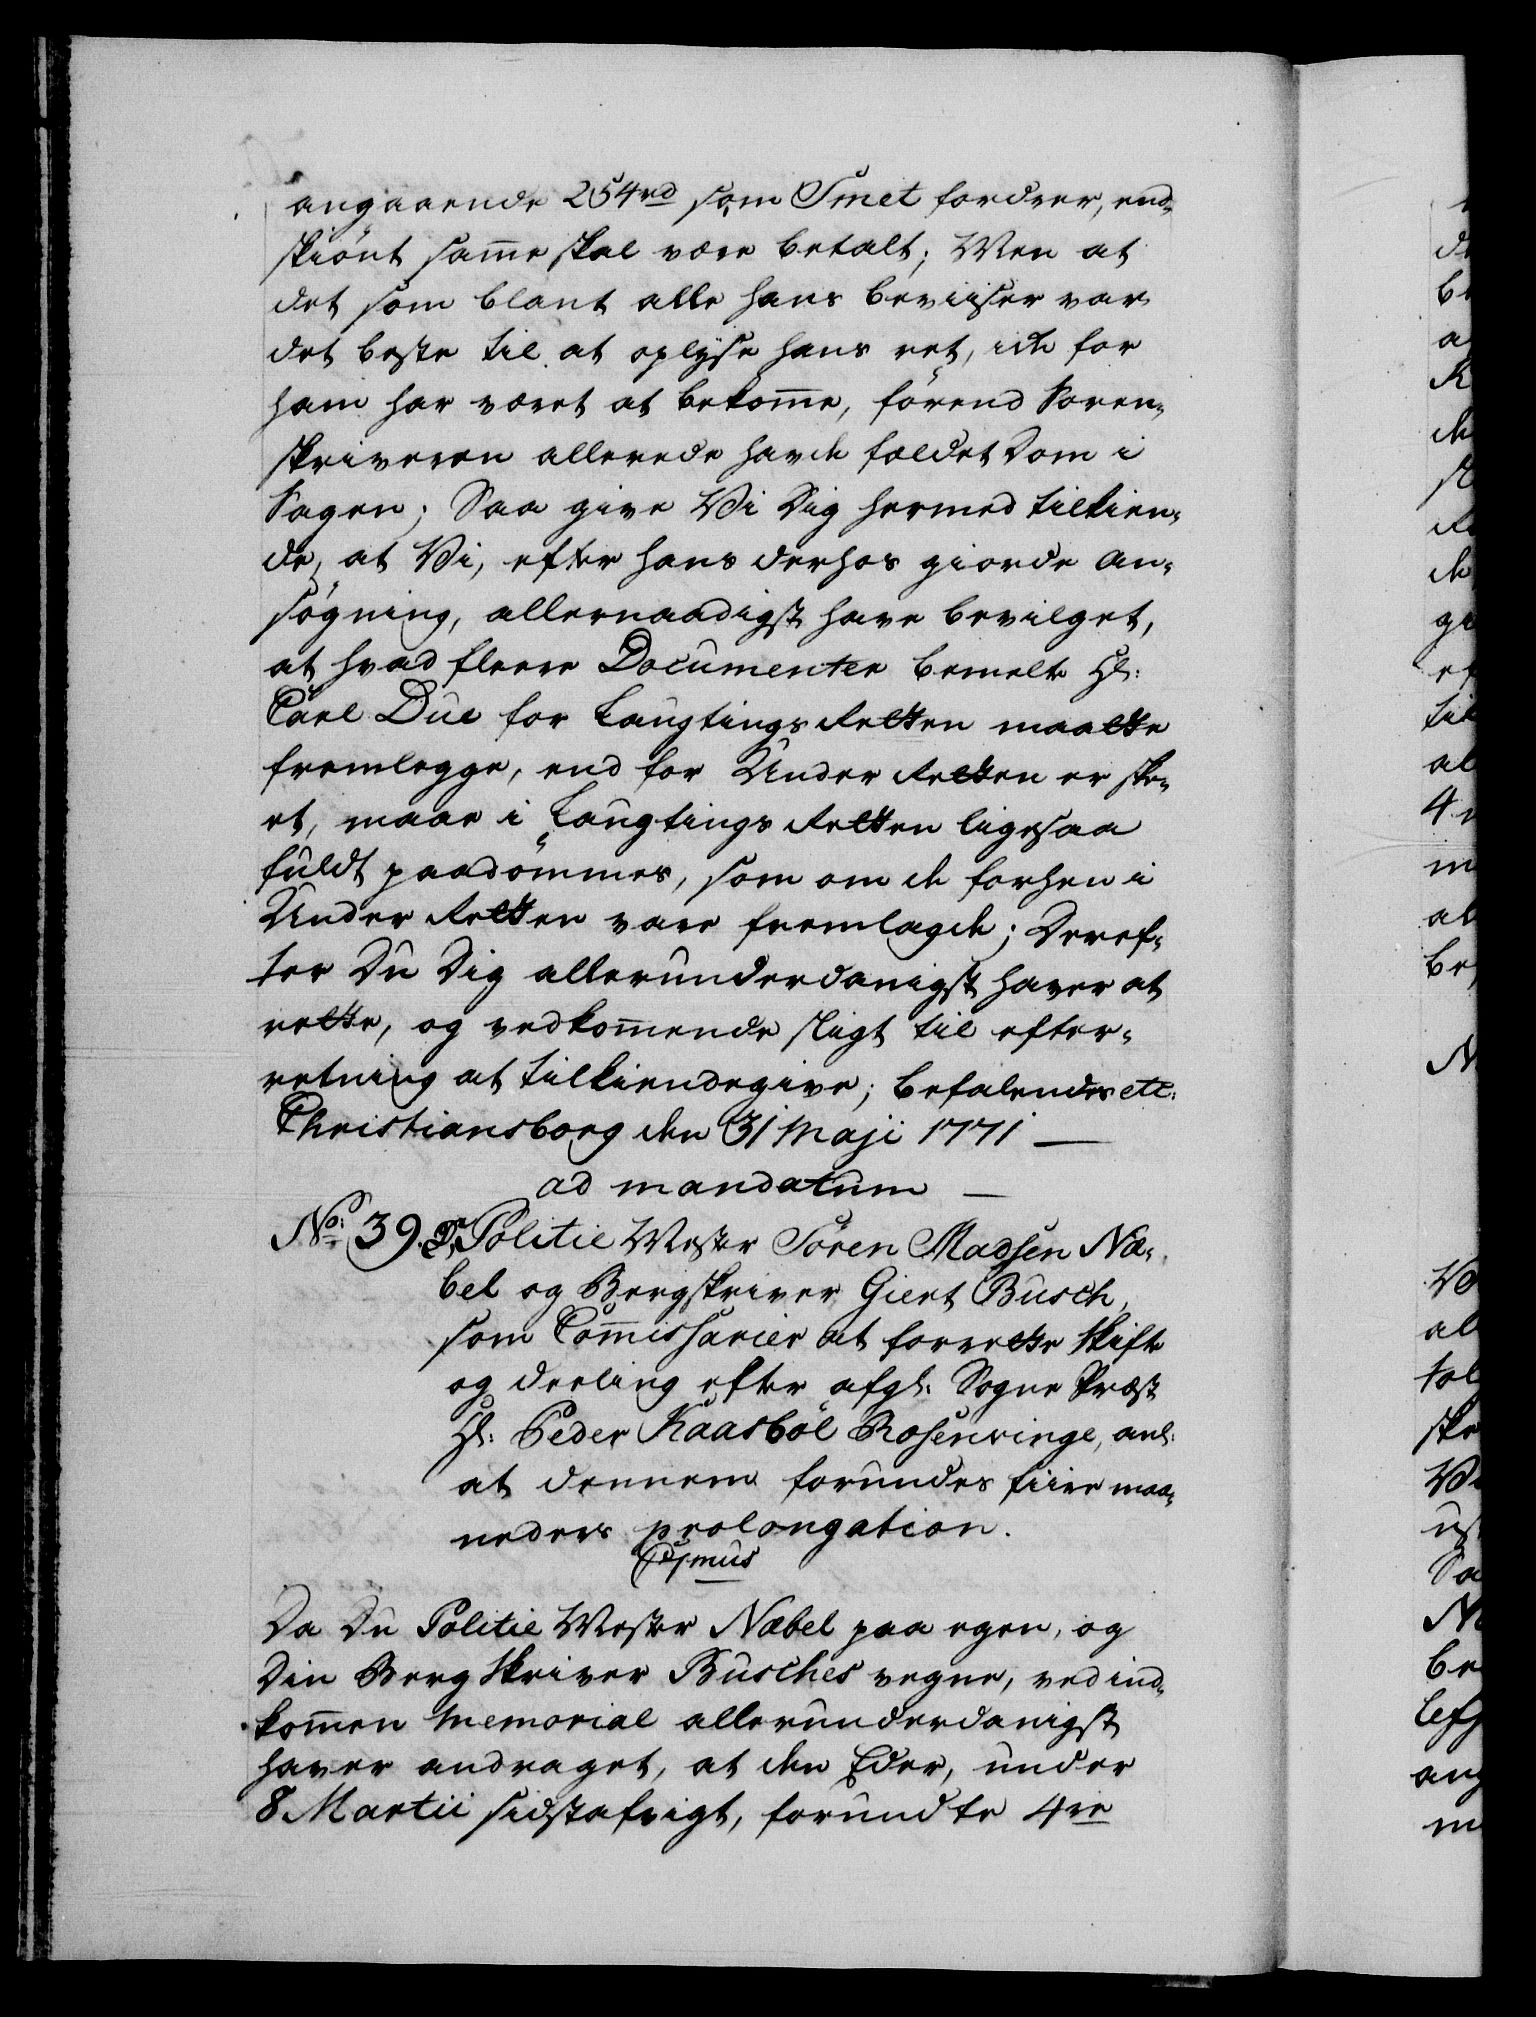 angaaende 254rd som Smet fordrer, end-
skiönt samme skal være betalt; Men at
det som blant alle hans beviiser var
det beste til at oplyse hans ret, icke for
ham har været at bekomme, förend Soren-
skriveren allerede havde fældet Dom i
Sagen; Saa give Vi Dig hermed tilkien-
de, at Vi, efter hans derhos giorde an-
søgning, allernaadigst have bevilget,
at hvad fleere Documenter bemelte Hr:
Carl Due for Laugtings Retten maatte
fremlegge, end for Under Retten er ske-
et, maae i Laugtings Retten ligesaa
fuldt paadömmes, som om de forhen i
Under Retten vare fremlagde; Deref-
ter Du Dig allerunderdanigst haver at
rette, og vedkommende sligt til efter-
retning at tilkiendegive; Befalendes etc:
Christiansborg den 31 Maji 1771 —
ad mandatum —
No: 39. Politie Mester Sören Madsen Næ-
bel og Bergskriver Giert Busch,
som Commissarier at forrette Skifte
og deeling efter afgl: Sogne Præst
Hr: Peder Kaasböl Rosenvinge, anl:
at dennem forundes fiire maa-
neders prolongation.
C7mus
Da Du Politie Mester Næbel paa egen, og
Din Berg Skriver Busches vegne, ved ind-
kommen Memorial allerunderdanigst
haver andraget, at den Eder, under
8 Martii sidstafvigt, forundte 4re